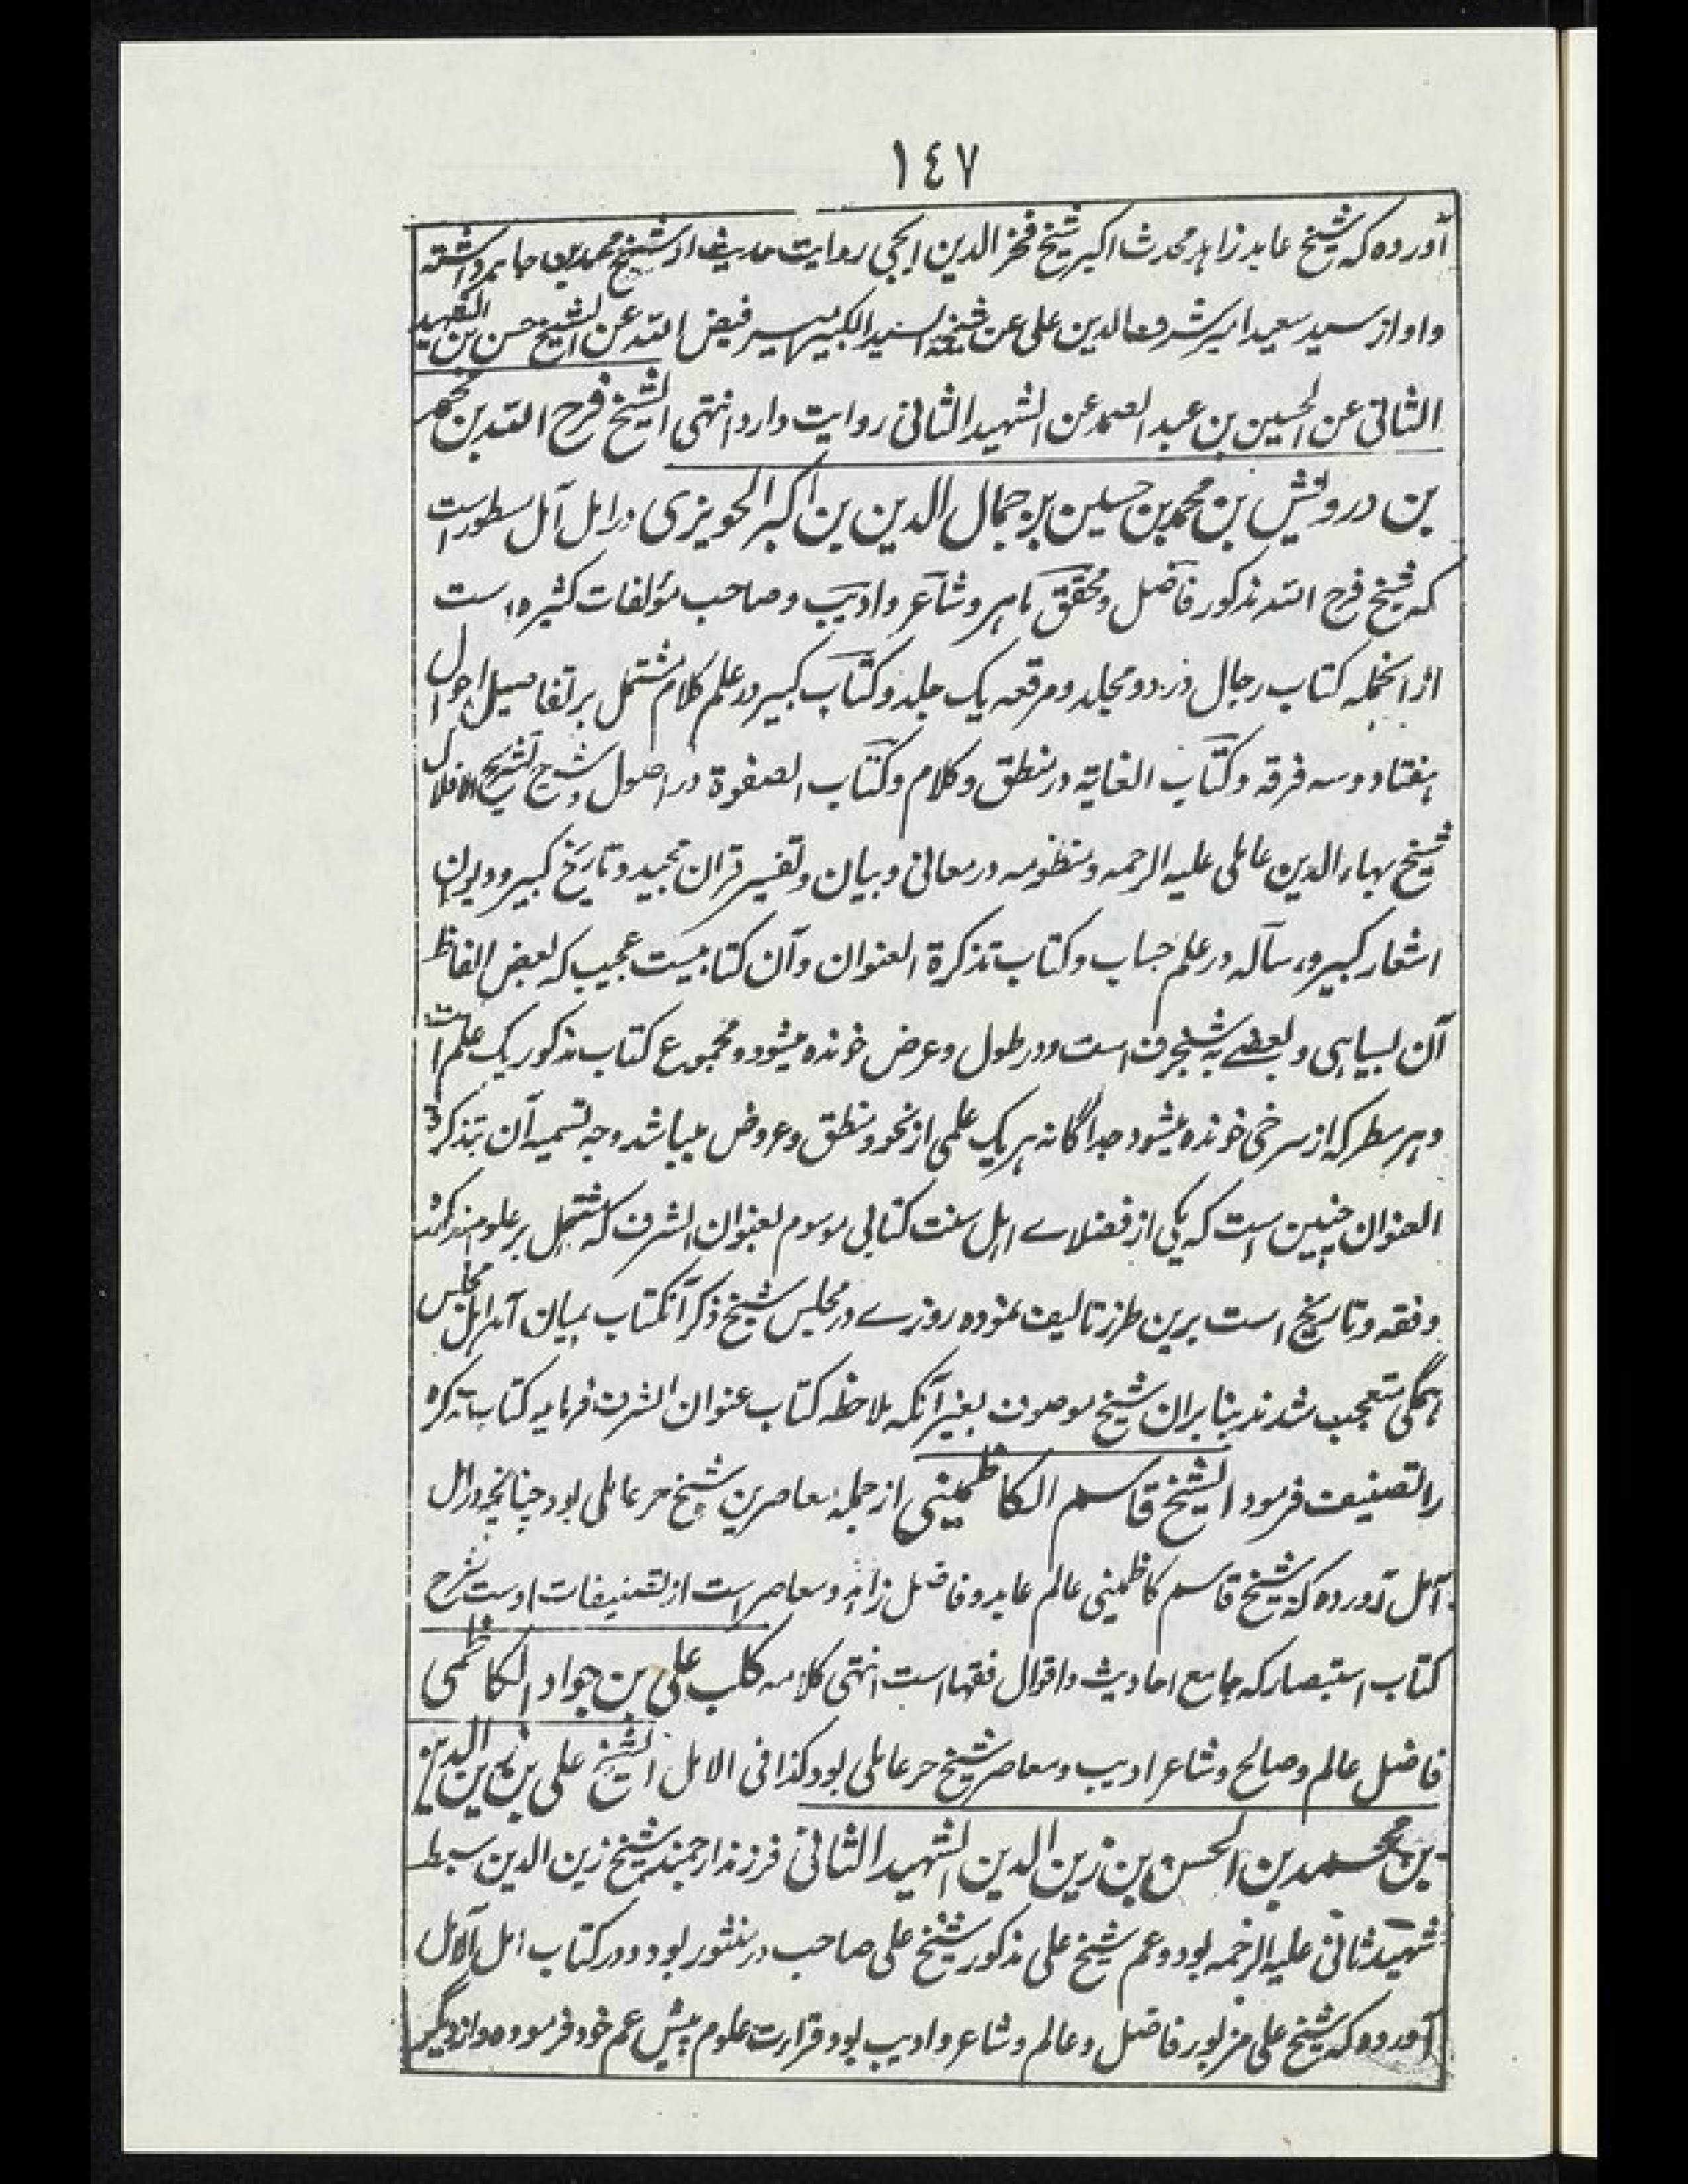 ١٤٧
آورده که شیخ عابد زاهد محدث اکبر شیخ فخر الدین روایت حدیث از شیخ محمد بن جابر داشته
واو از سید سعید امیر شرف الدین علی عن شیخه السید الکبیر میر فیض الله عن الشیخ حسن بن الشهید
الثانی عن الحسین بن عبد الصمد عن الشهید الثانی روایت دارد انتهی الشیخ فرح الله بن محمد
بن درویش بن محمد بن حسین بن جمال الدین بن اکبر الحویزی در امل آمل مسطور است
که شیخ فرح الله مذکور فاضل و محقق ماهر و شاعر و ادیب و صاحب مؤلفات کثیره است
از انجمله کتاب رجال در دو مجلد و مرقعه یک جلد و کتاب کبیر در علم کلام مشتمل بر تفاصیل احوال
هفتاد و سه فرقه و کتاب الغایة در منطق و کلام و کتاب الصفوة در اصول و شرح تشریح الافلاک
شیخ بهاء الدین عاملی علیه الرحمه و منظومه در معانی و بیان و تفسیر قران مجید و تاریخ کبیر و دیوان
اشعار کبیر و رساله در علم حساب و کتاب تذکرة العنوان و آن کتابیست عجیب که بعض الفاظ
آن بسیاهی و بعضے به شنجرف است و در طول و عرض خونده میشود و مجموع کتاب مذکور یک علم است
و هر سطر که از سرخی خونده میشود جداگانه هر یک علمی از نحو و منطق و عروض میباشد وجه تسمیه آن بتذکرة
العنوان چنین است که یکی از فضلاے اهل سنت کتابی موسوم بعنوان الشرف که مشتمل بر علوم مذکوره
و فقه و تاریخ است برین طرز تالیف نموده روزے در مجلس شیخ ذکر آنکتاب بمیان آمد اهل مجلس
همگی متعجب شدند بنا بران شیخ موصوف بغیر آنکه ملاحظه کتاب عنوان الشرف فرماید کتاب تذکره
را تصنیف فرمود الشیخ قاسم الکاظمینی از جمله معاصرین شیخ حر عاملی بود چنانچه در امل
آمل آورده که شیخ قاسم کاظمینی عالم عابد و فاضل زاهد و معاصر است از تصنیفات اوست شرح
کتاب استبصار که جامع احادیث و اقوال فقها است انتهی کلامه کلب علی بن جواد الکاظمی
فاضل عالم و صالح و شاعر ادیب و معاصر شیخ حر عاملی بود کذا فی الامل الشیخ علی بن زین الدین
بن محمد بن الحسن بن زین الدین الشهید الثانی فرزند ارجمند شیخ زین الدین سبط
شهید ثانی علیه الرحمه بود و عم شیخ علی مذکور شیخ علی صاحب در منثور بود و در کتاب امل الآمل
آورده که شیخ علی مزبور فاضل و عالم و شاعر و ادیب بود قرارت علوم پیش عم خود فرموده و از دیگر